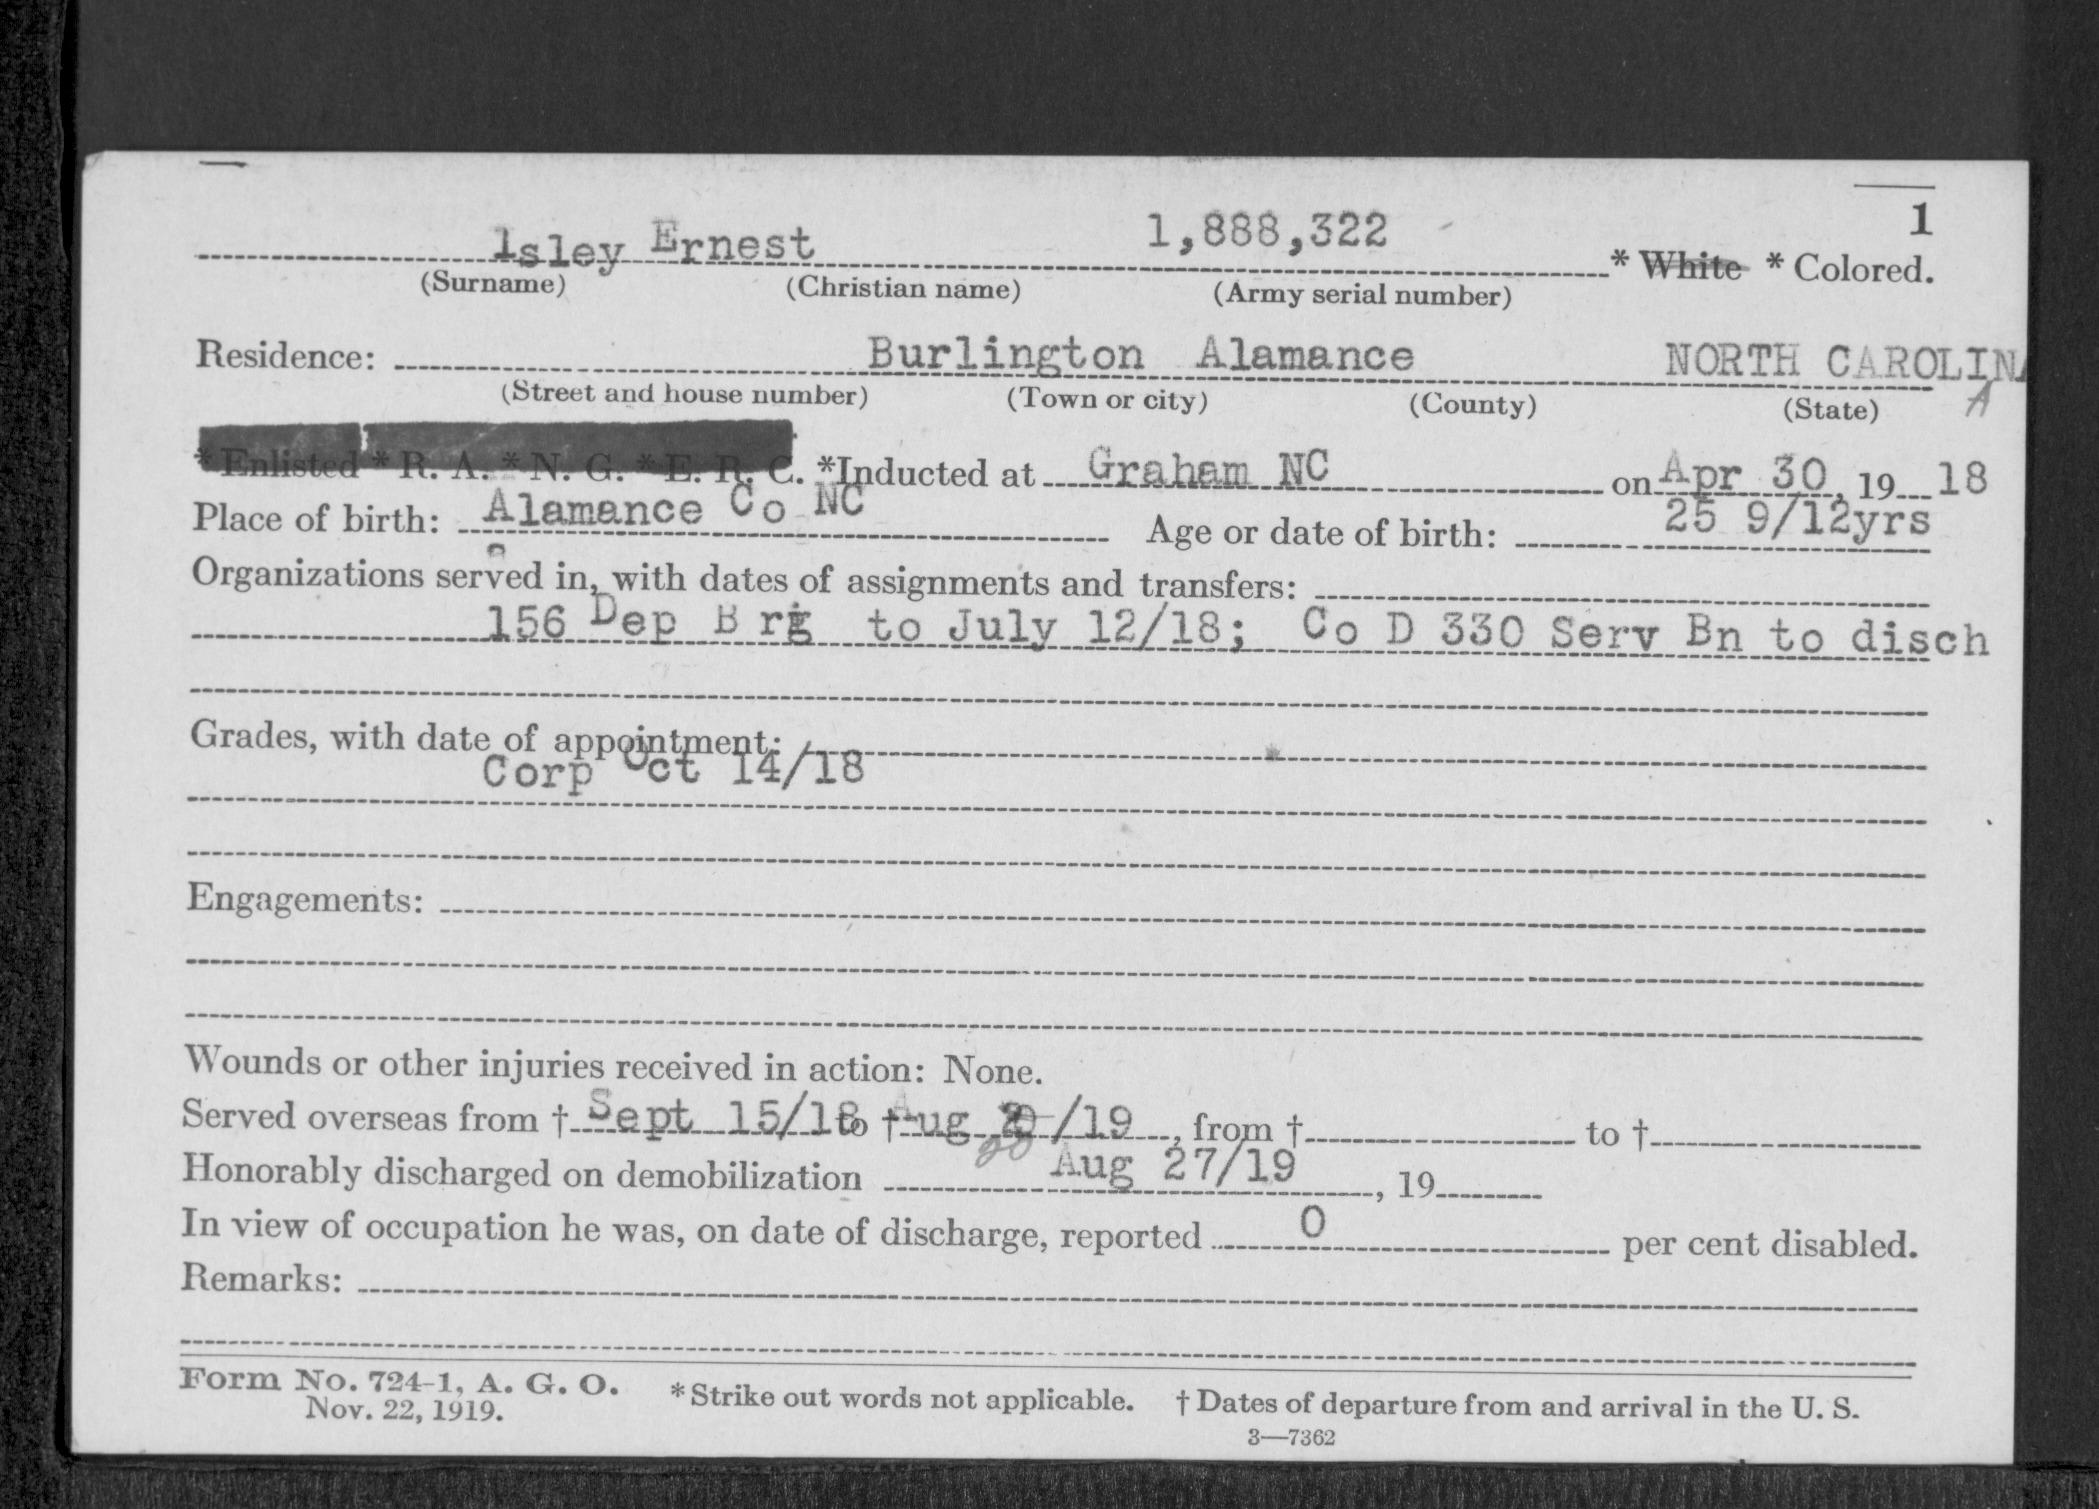 1
Isley Ernest 1,888,322 * White * Colored.
(Surname) (Christian name) (Army serial number)
Residence: Burlington Alamance NORTH CAROLINA
(Street and house number) (Town or city) (County) (State) A
* Enlisted * R. A. * N. G. * E. R. C. *Inducted at Graham NC on Apr 30, 19 18
Place of birth: Alamance Co NC Age or date of birth: 25 9/12yrs
Organizations served in, with dates of assignments and transfers:
156 Dep Brg to July 12/18; Co D 330 Serv Bn to disch
Grades, with date of appointment:
Corp Oct 14/18
Engagements:
Wounds or other injuries received in action: None.
Served overseas from † Sept 15/18 to † Aug 20/19, from † to †
Honorably discharged on demobilization Aug 27/19, 19
In view of occupation he was, on date of discharge, reported 0 per cent disabled.
Remarks:
Form No. 724-1, A. G. O. *Strike out words not applicable. † Dates of departure from and arrival in the U. S.
Nov. 22, 1919.
3—7362